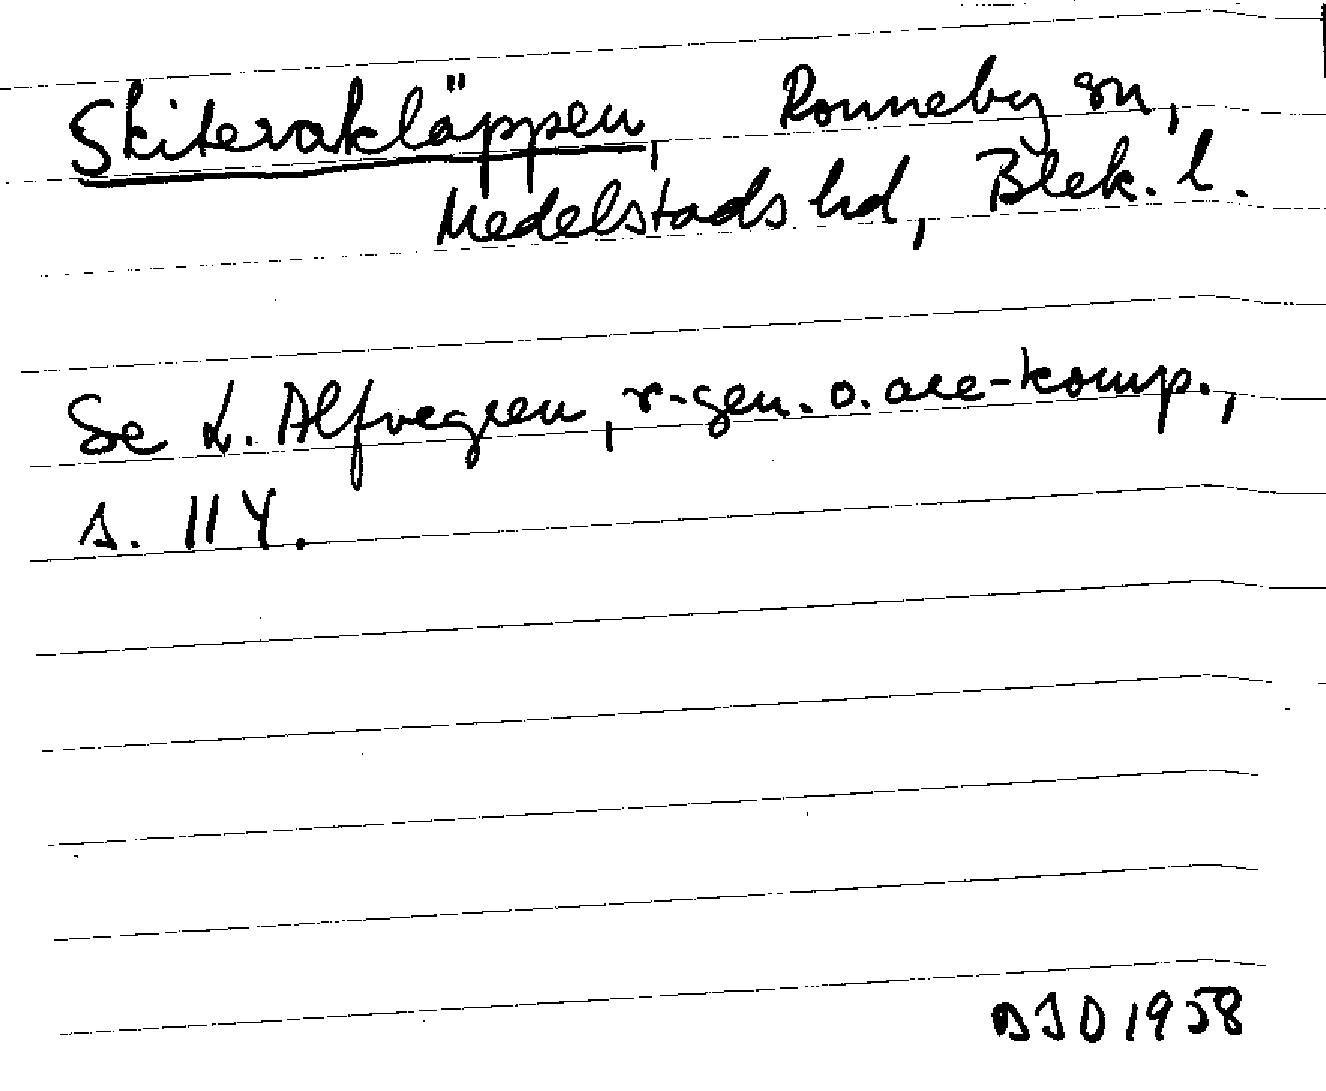 Skiterakläppen, Ronneby sn,
Medelstads hd, Blek. l.
Se L. Alfvegren, r-gen. o. are-komp.,
s. 114.
1958